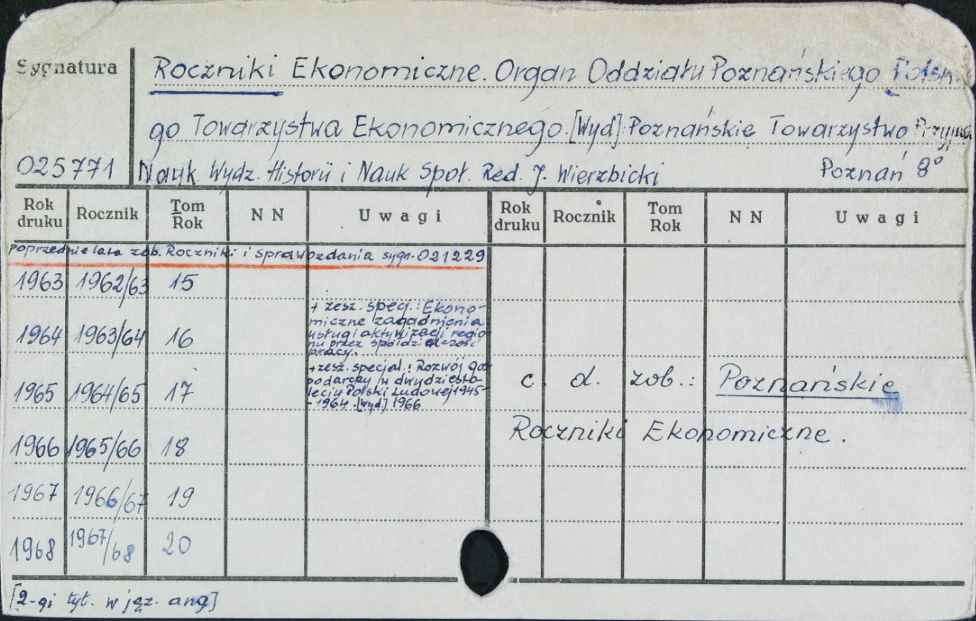 Sygnatura
Roczniki Ekonomiczne. Organ Oddziału Poznańskiego Polskie
go Towarzystwa Ekonomicznego. [Wyd] Poznańskie Towarzystwo
025771 Nauk Wydz. Historii i Nauk Społ. Red. J. Wierzbicki Poznań 8°
Rok druku Rocznik Tom Rok NN Uwagi Rok druku Rocznik Tom Rok NN Uwagi
Poprzednie lata zob. Roczniki i sprawozdania sygn. 021229
1963 1962/63 15
1964 1963/64 16 + zesz. specj.: Ekono-
miczne zagadnienia
usługi aktywizacji regio
nu przez spółdzielczość
pracy.
1965 1964/65 17 + zesz. specjal.: Rozwój go
podarczy w dwudziesto-
leciu Polski Ludowej 1945-
-1964. [Wyd] 1966
c. d. zob.: Poznańskie
Roczniki Ekonomiczne.
1966 1965/66 18
1967 1966/67 19
1968 1967/68 20
[2-gi tyt. w jęz. ang]